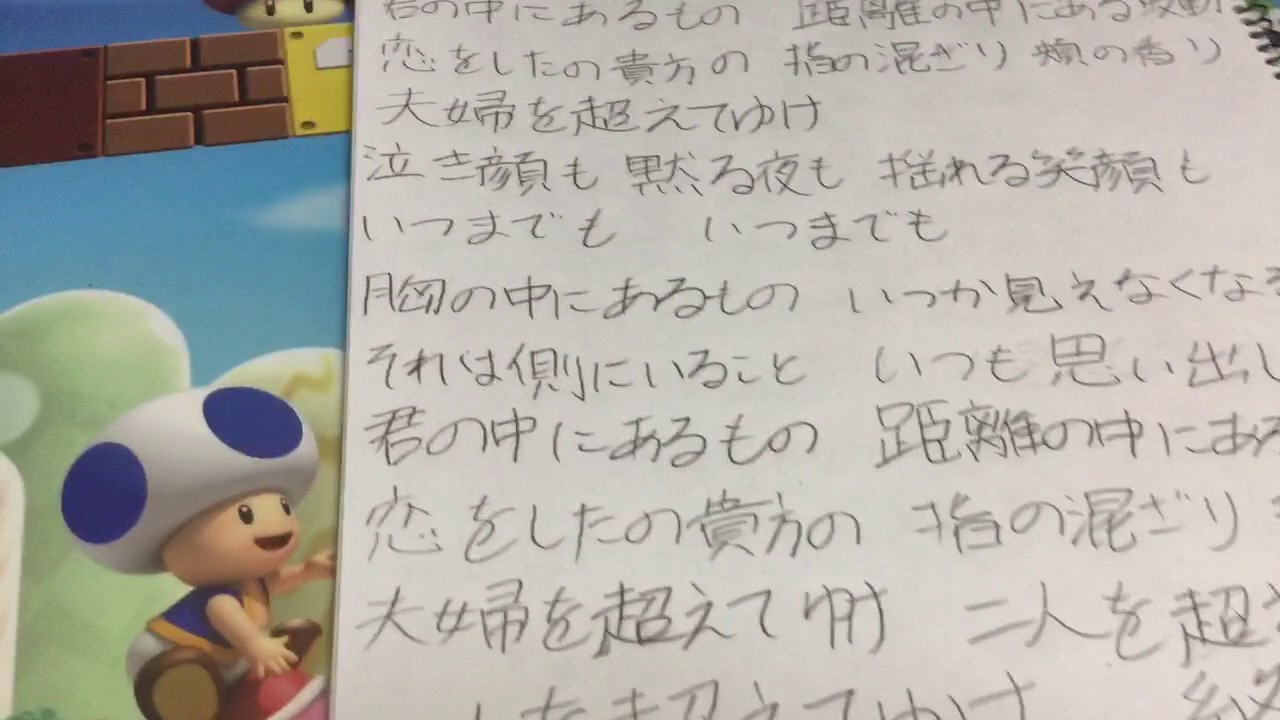 君の中にあるもの 距離の中にある鼓動
恋をしたの貴方の 指の混ざり 頬の香り
夫婦を超えてゆけ
泣き顔も 黙る夜も 揺れる笑顔も
いつまでも いつまでも
胸の中にあるもの いつか見えなくなる
それは側にいること いつも思い出し
君の中にあるもの 距離の中にある
恋をしたの貴方の 指の混ざり
夫婦を超えてゆけ 二人を超え
人を超えてゆけ